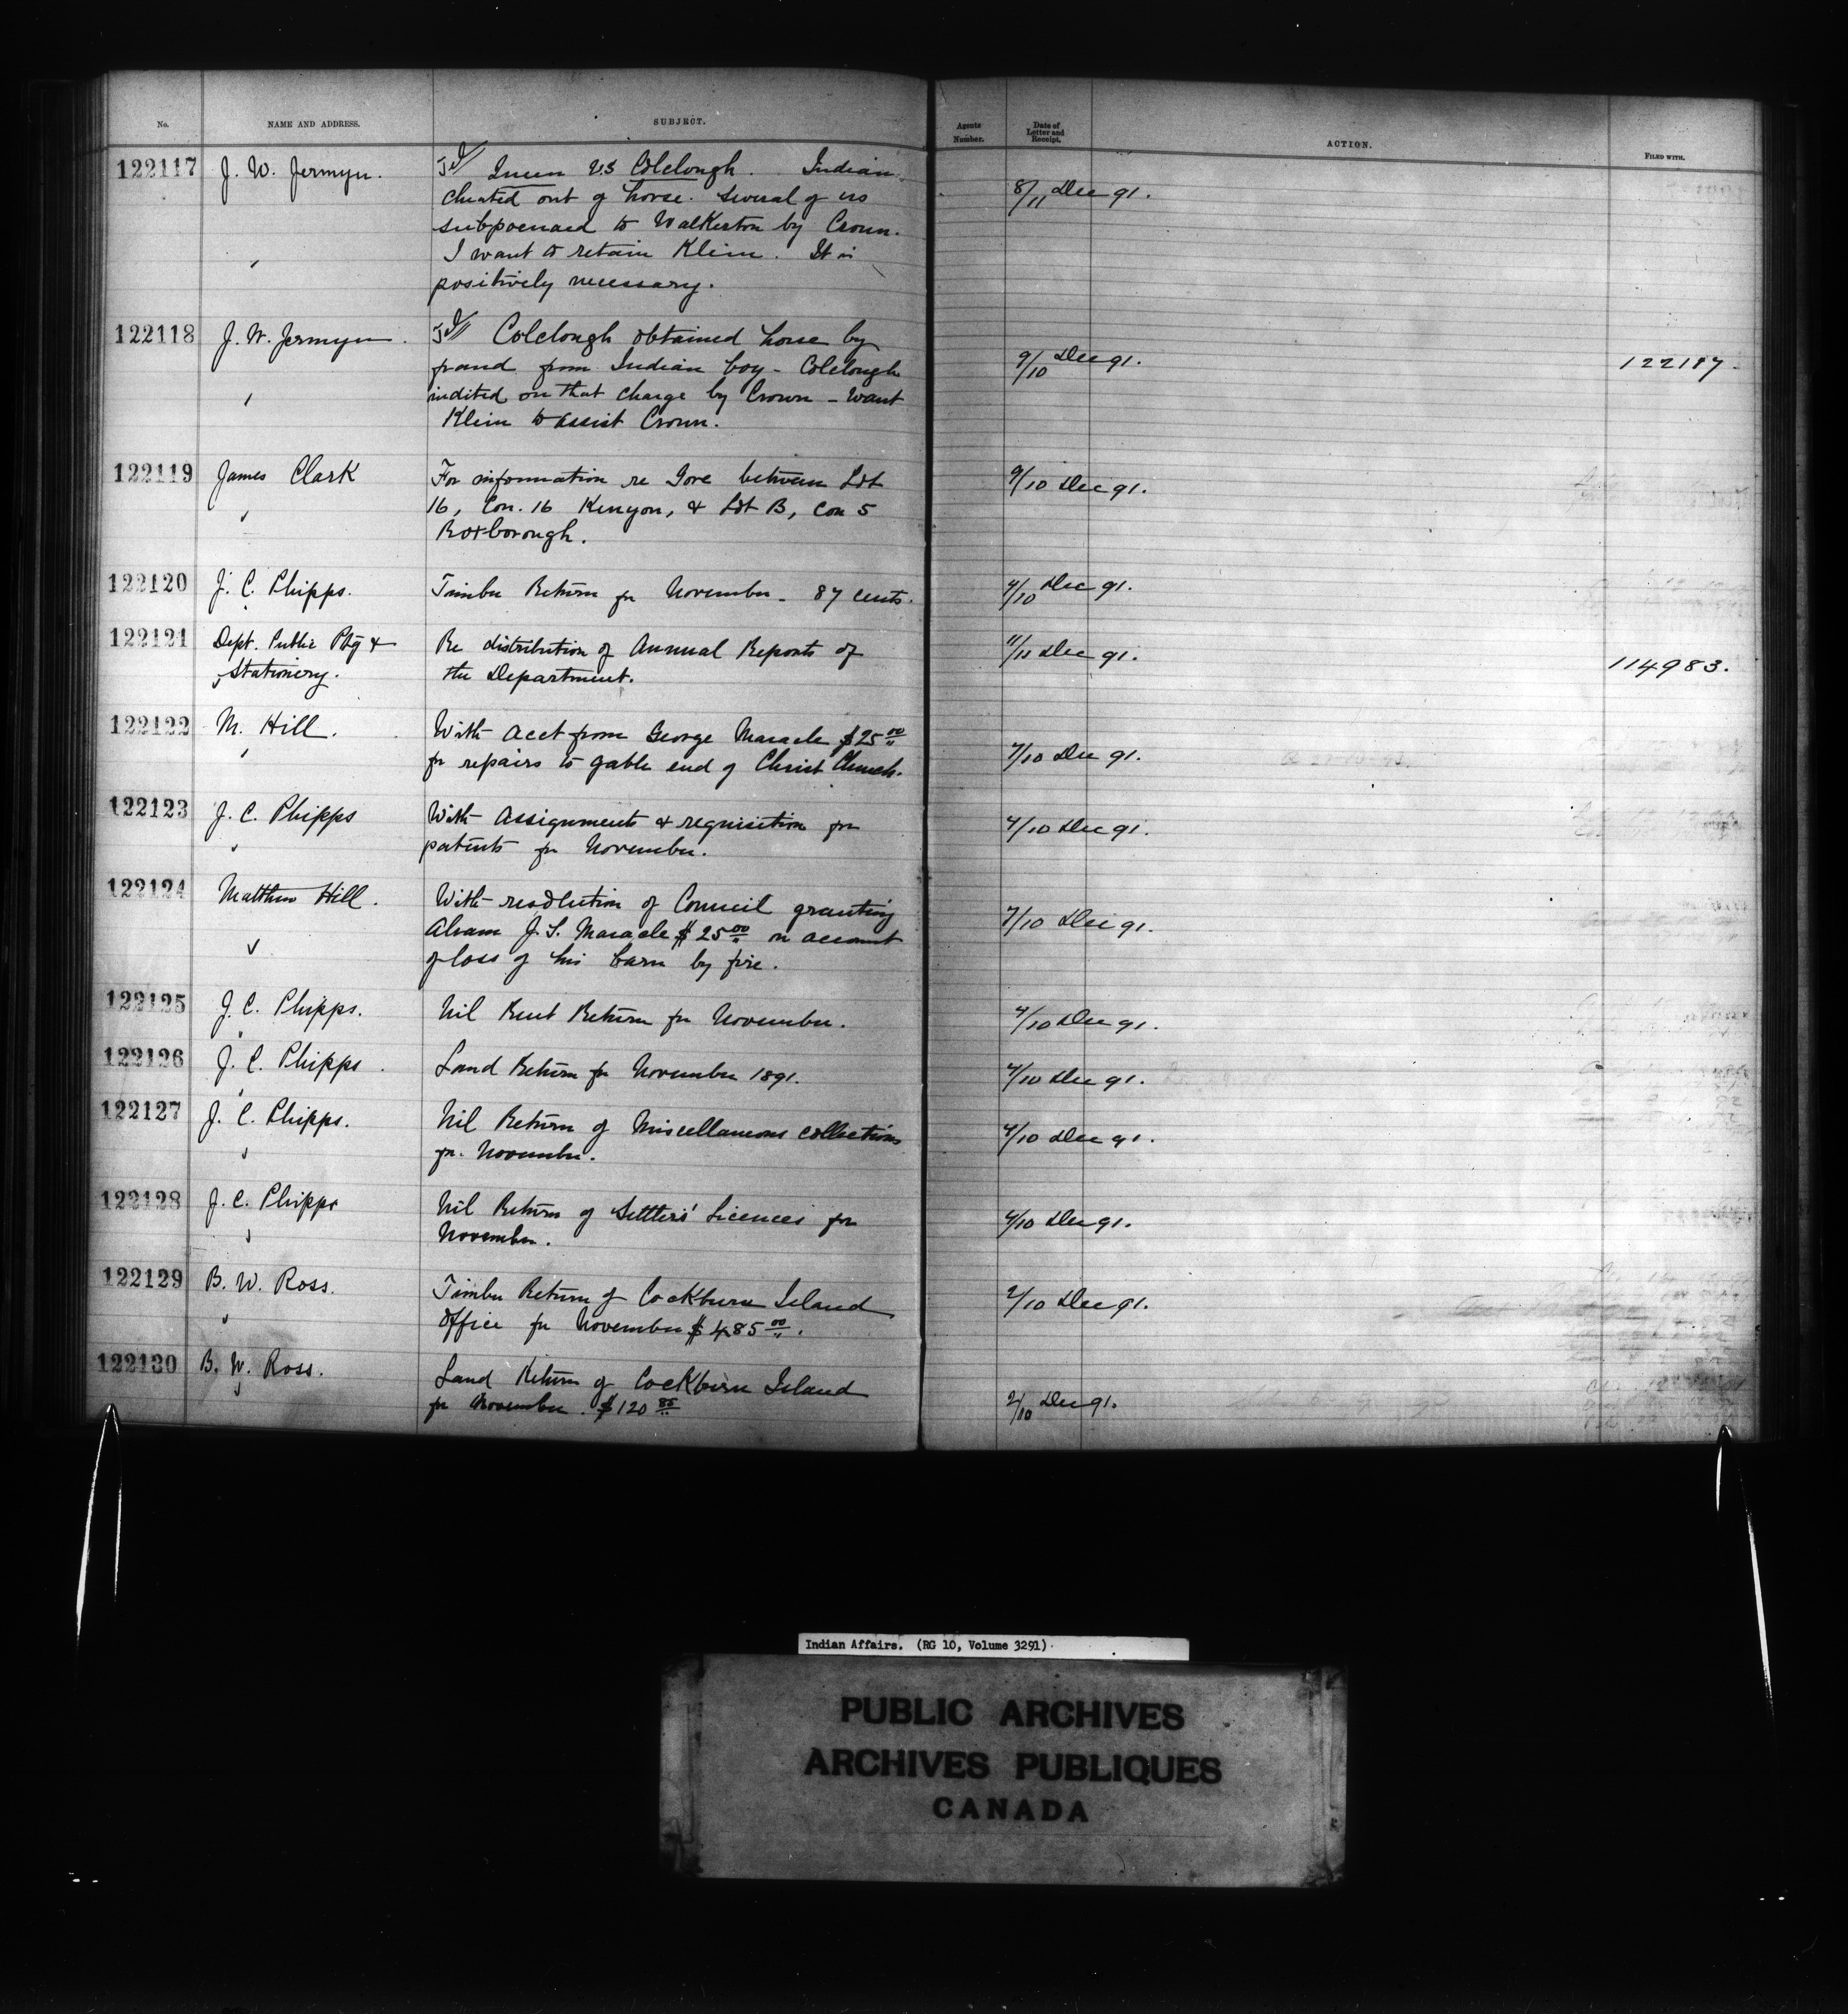 No.
NAME AND ADDRESS.
SUBJECT.
Agents Number.
Date of Letter and Receipt.
ACTION.
FILED WITH.
122117
J. W. Jermyn.
Queen vs Colclough. Indian
cheated out of horse. Several of us
subpoenaed to Walkerton by Crown.
I want to retain Klein. It is
positively necessary.
8/11 Dec 91.
122118
J. W. Jermyn.
Colclough obtained horse by
fraud from Indian boy - Colclough
indited on that charge by Crown - Want
Klein to assist Crown.
9/10 Dec 91.
122117.
122119
James Clark
For information re Gore between Lot
16, Con. 16 Kenyon, & Lot B, Con 5
Roxborough.
9/10 Dec 91.
122120
J. C. Phipps.
Timber Return for November - 87 cents.
4/10 Dec 91.
122121
Dept. Public Ptg &
Stationery.
Re distribution of Annual Reports of
the Department.
11/11 Dec 91.
114983.
122122
M. Hill.
With acct from George Maracle $25 00
for repairs to gable end of Christ Church.
7/10 Dec 91.
122123
J. C. Phipps
With Assignments & requisition for
patents for November.
4/10 Dec 91.
122124
Matthew Hill.
With resolution of Council granting
Abram J. S. Maracle $25 00 on account
of loss of his barn by fire.
7/10 Dec 91.
122125
J. C. Phipps.
Nil Rent Return for November.
4/10 Dec 91.
122126
J. C. Phipps.
Land Return for November 1891.
4/10 Dec 91.
122127
J. C. Phipps.
Nil Return of Miscellaneous collections
for November.
4/10 Dec 91.
122128
J. C. Phipps
Nil Return of Settlers' Licences for
November.
4/10 Dec 91.
122129
B. W. Ross.
Timber Return of Cockburn Island
Office for November $485 00.
2/10 Dec 91.
122130
B. W. Ross.
Land Return of Cockburn Island
for November. $120 85
2/10 Dec 91.
Indian Affairs. (RG 10, Volume 3291)
PUBLIC ARCHIVES
ARCHIVES PUBLIQUES
CANADA